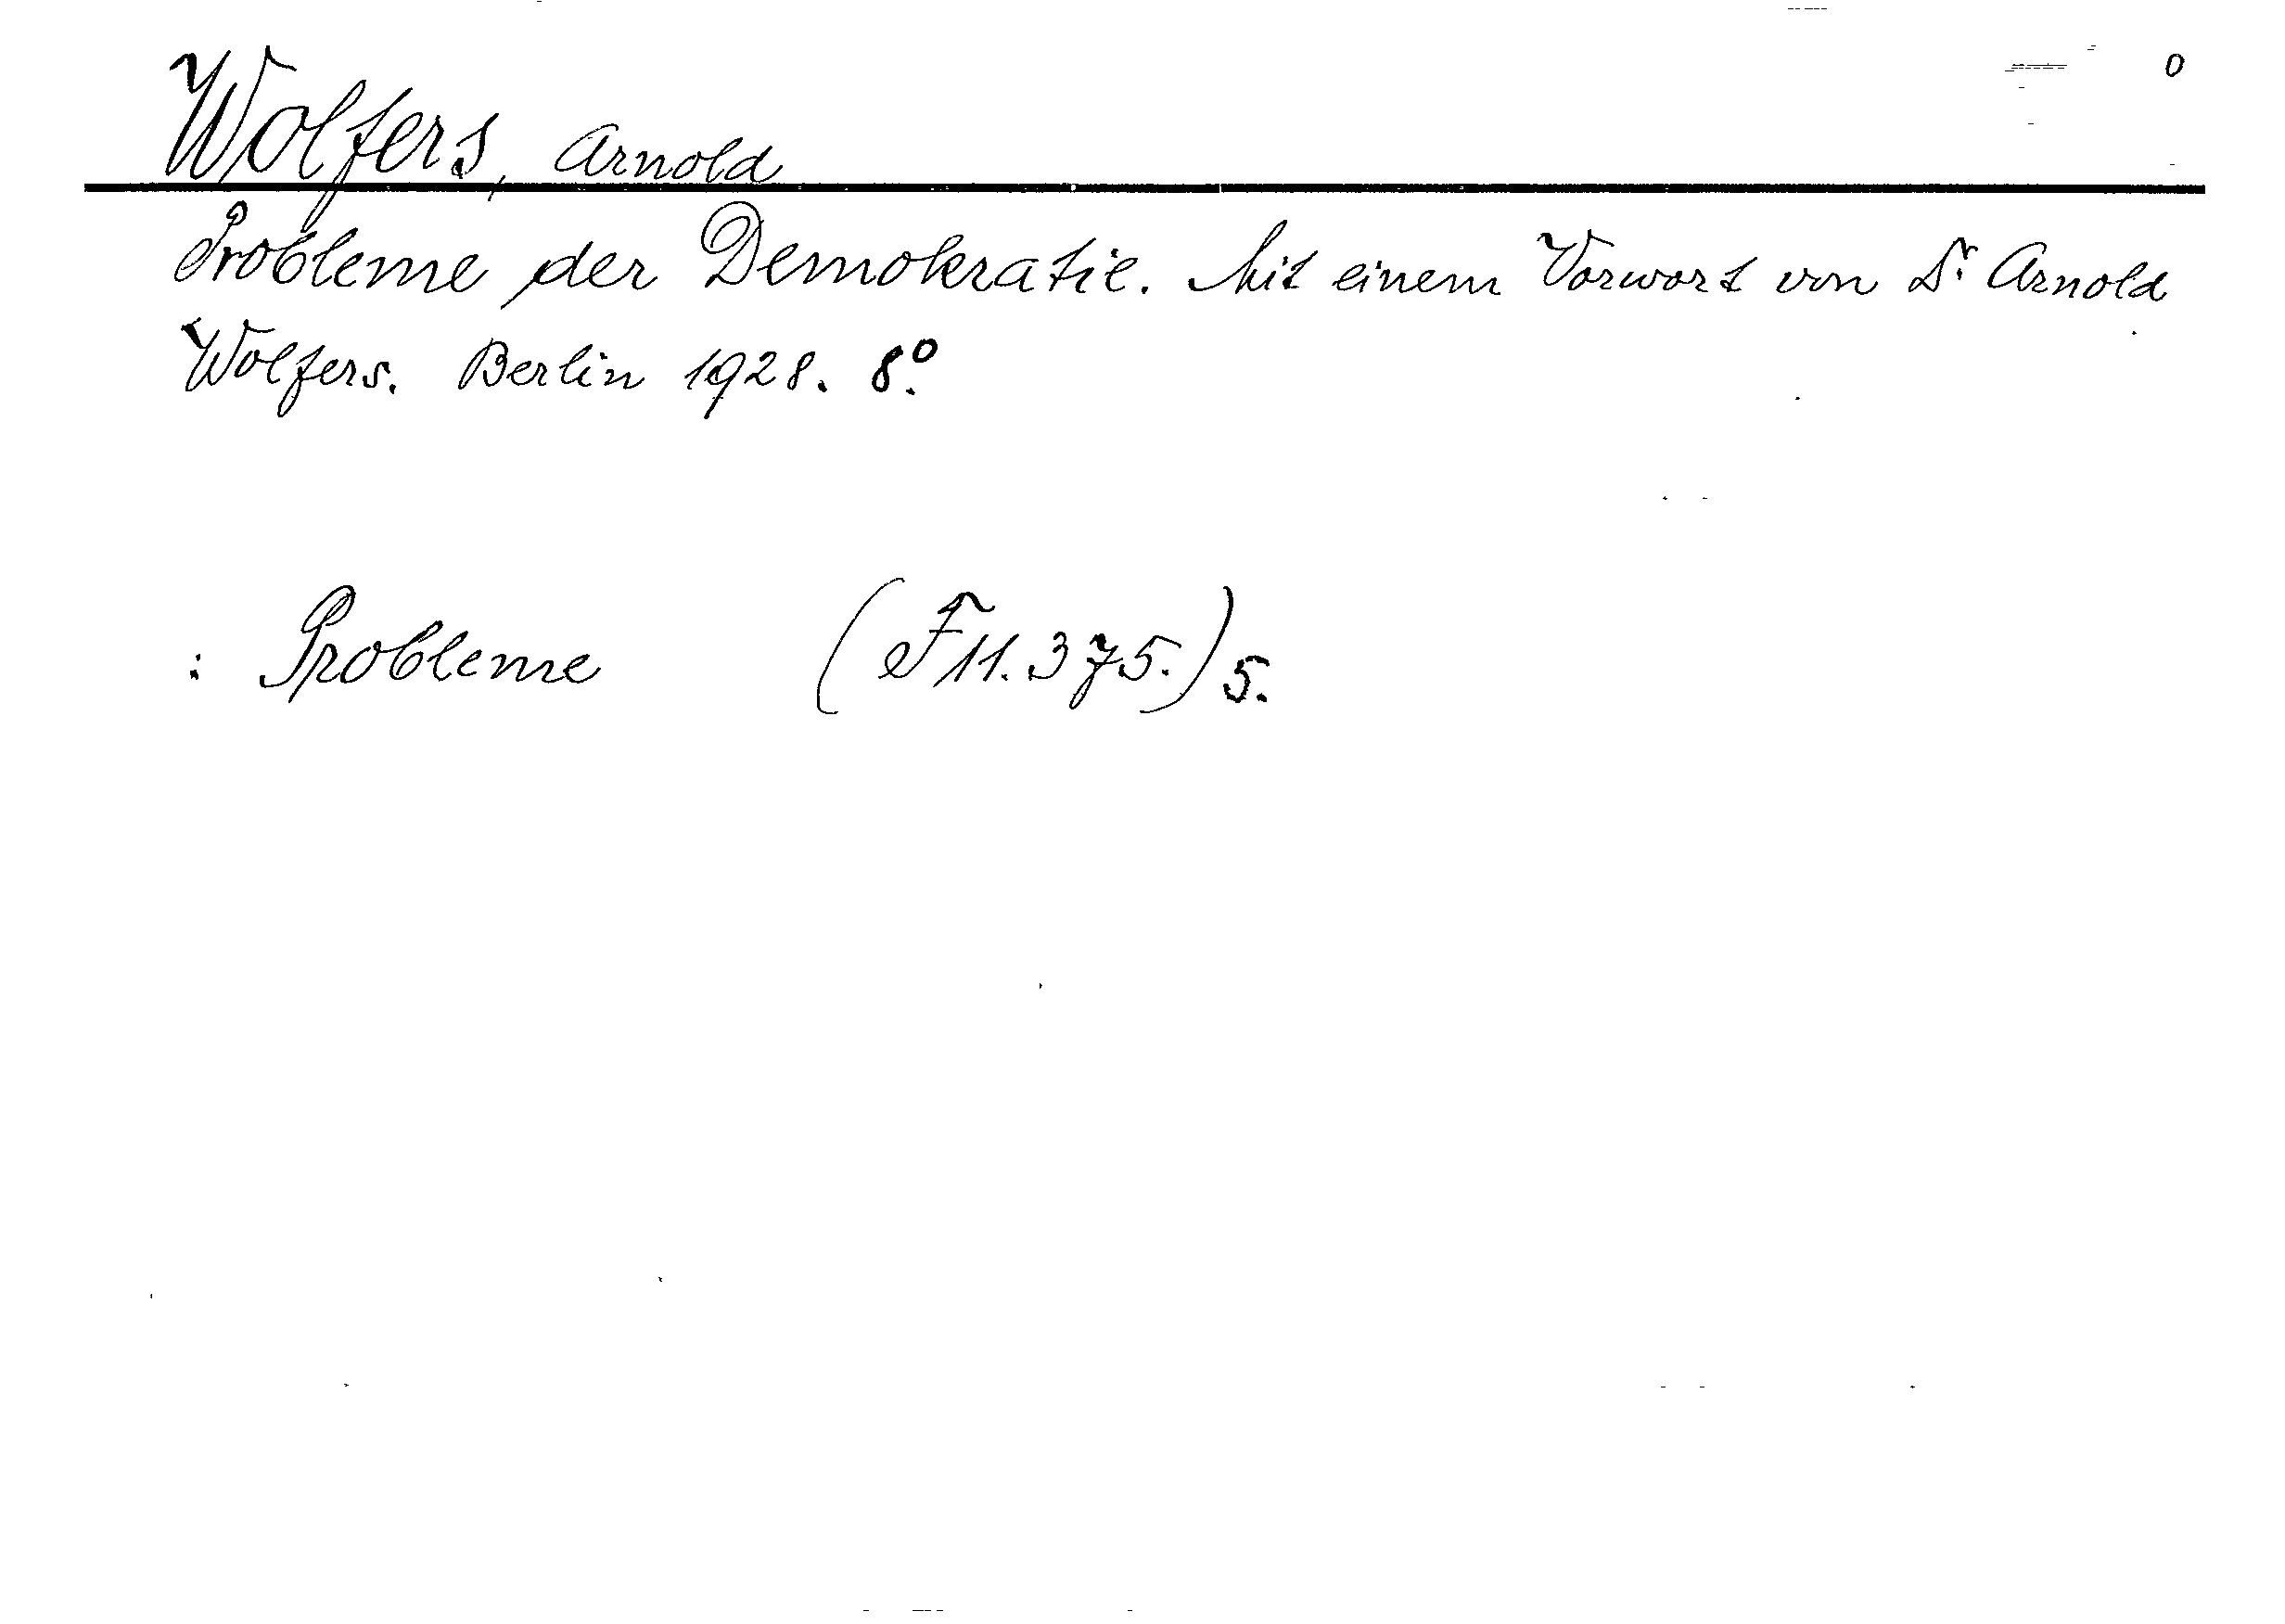 0
Wolfers, Arnold
Probleme der Demokratie. Mit einem Vorwort von Dr. Arnold
Wolfers. Berlin 1928. 8º.
: Probleme (F 11.375.) 5.